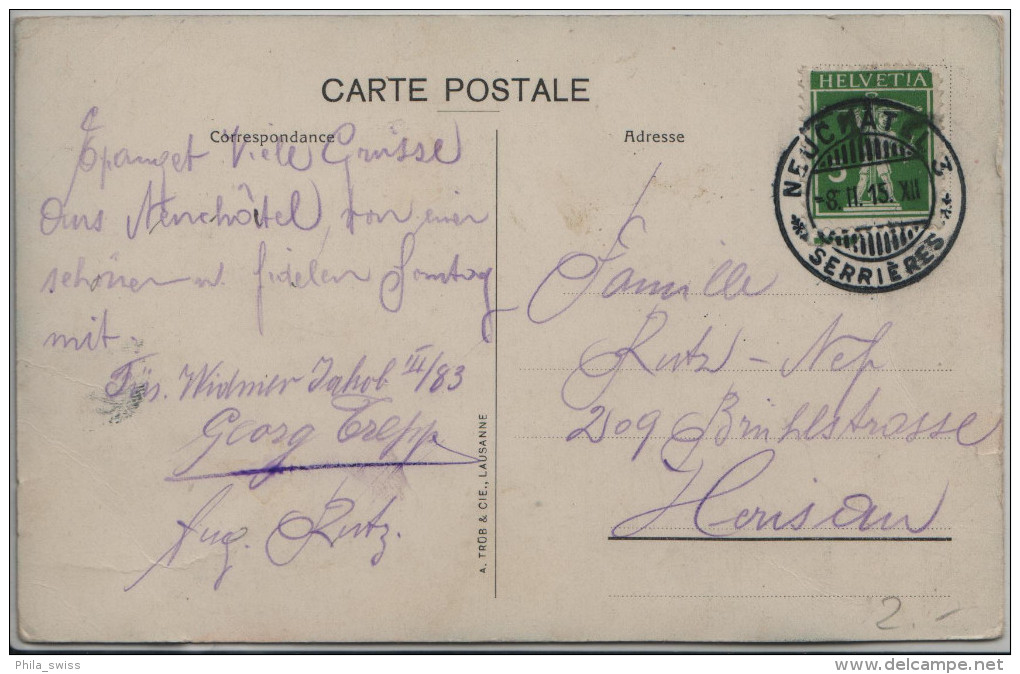 CARTE POSTALE
Correspondance
Adresse
Viele Grüsse
aus Neuchâtel, von einer
schönen u. fidelen Sonntag
mit
Füs. Widmer Jakob III/83
Georg Trepp
Aug. Rutz.
A. TRÜB & CIE., LAUSANNE
HELVETIA
5
NEUCHATEL 3
-8.II.15. XII
* SERRIÈRES *
Familie
Rutz - Nef
209 Brühlstrasse
Herisau
2.-
Phila_swiss
www.delcampe.net